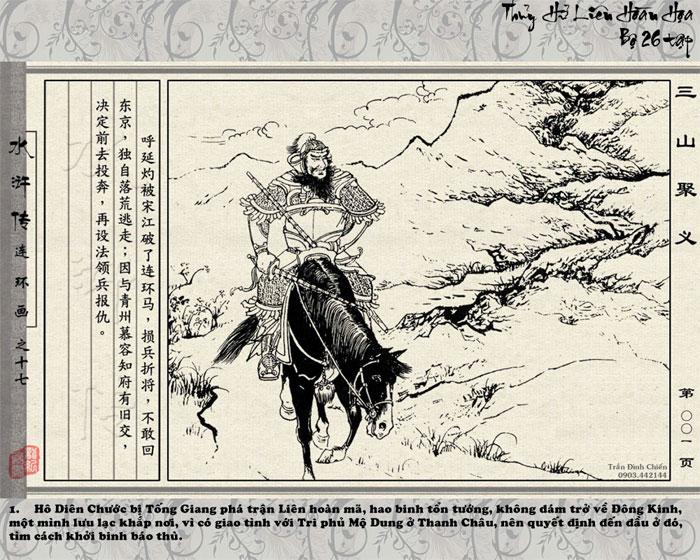 Thủy Hử Liên Hoàn Họa
Bộ 26 tập
三山聚义
呼延灼被宋江破了连环马，损兵折将，不敢回
东京，独自落荒逃走；因与青州慕容知府有旧交，
决定前去投奔，再设法领兵报仇。
水浒传连环画之十七
第〇〇一页
Trần Đình Chiến
0903.442144
1. Hô Diên Chước bị Tống Giang phá trận Liên hoàn mã, hao binh tổn tướng, không dám trở về Đông Kinh,
một mình lưu lạc khắp nơi, vì có giao tình với Tri phủ Mộ Dung ở Thanh Châu, nên quyết định đến đầu ở đó,
tìm cách khởi binh báo thù.